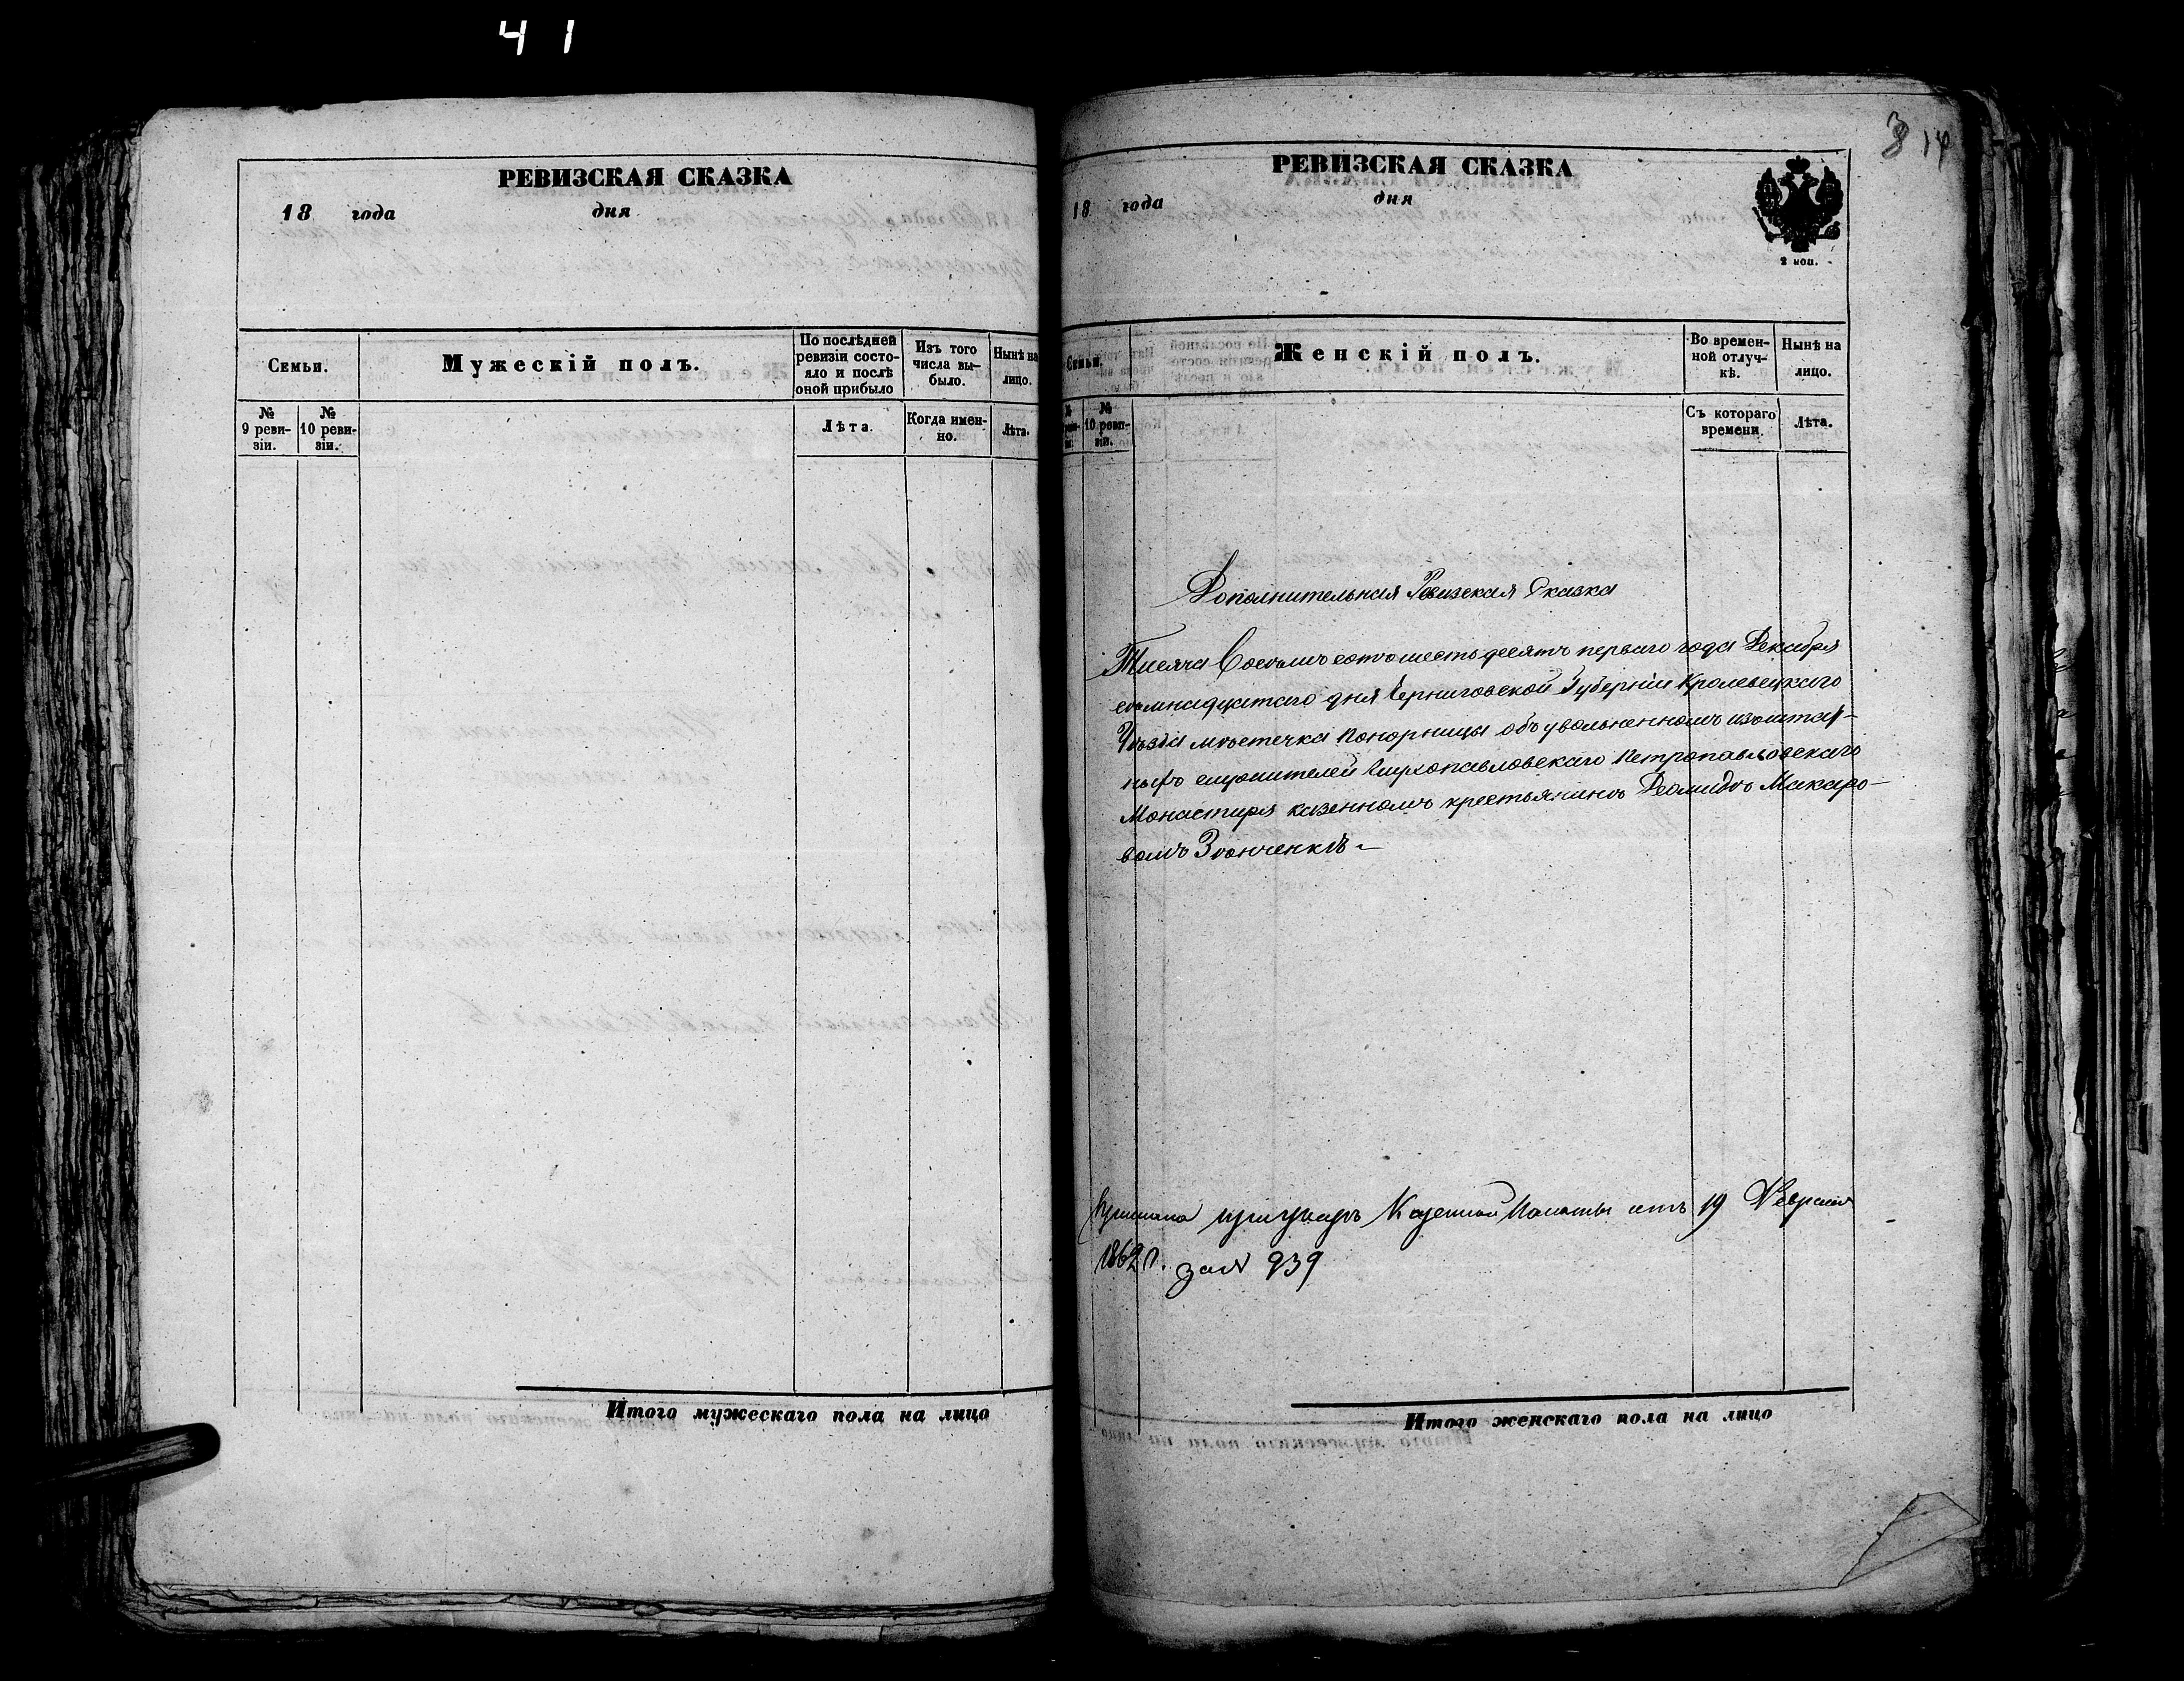 41
РЕВИЗСКАЯ СКАЗКА
18 года дня
Семьи.
Мужескій полъ.
По послѣдней ревизіи состояло и послѣ оной прибыло
Изъ того числа вы-было.
Нынѣ на лицо.
№ 9 реви-зіи.
№ 10 реви-зіи.
Лѣта.
Когда имен-но.
Лѣта.
Итого мужескаго пола на лицо
3 14
РЕВИЗСКАЯ СКАЗКА
18 года дня
2 коп.
Семьи.
Женскій полъ.
Во времен-ной отлуч-кѣ.
Нынѣ на лицо.
№ 10 реви-зіи.
Съ котораго времени.
Лѣта.
Дополнительная Ревизская Сказка
Тысяча Восемъ сотъ шестьдесятъ перваго года Декабря
семнадцатаго дня Черниговской Губерніи Кролевецкаго
Уѣзда мѣстечка Понорницы объ увольненномъ изъ штат-
ныхъ служителей Глухопавловскаго Петропавловскаго
Монастыря казенномъ крестьянинѣ Деомидѣ Макаро-
вомъ Званченкѣ
при указѣ Казенной Палаты отъ 19 Февраля
1862 г. за № 939
Итого женскаго пола на лицо